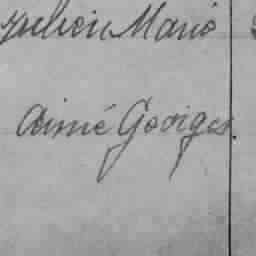 Julien Marie
Aimé Georges.